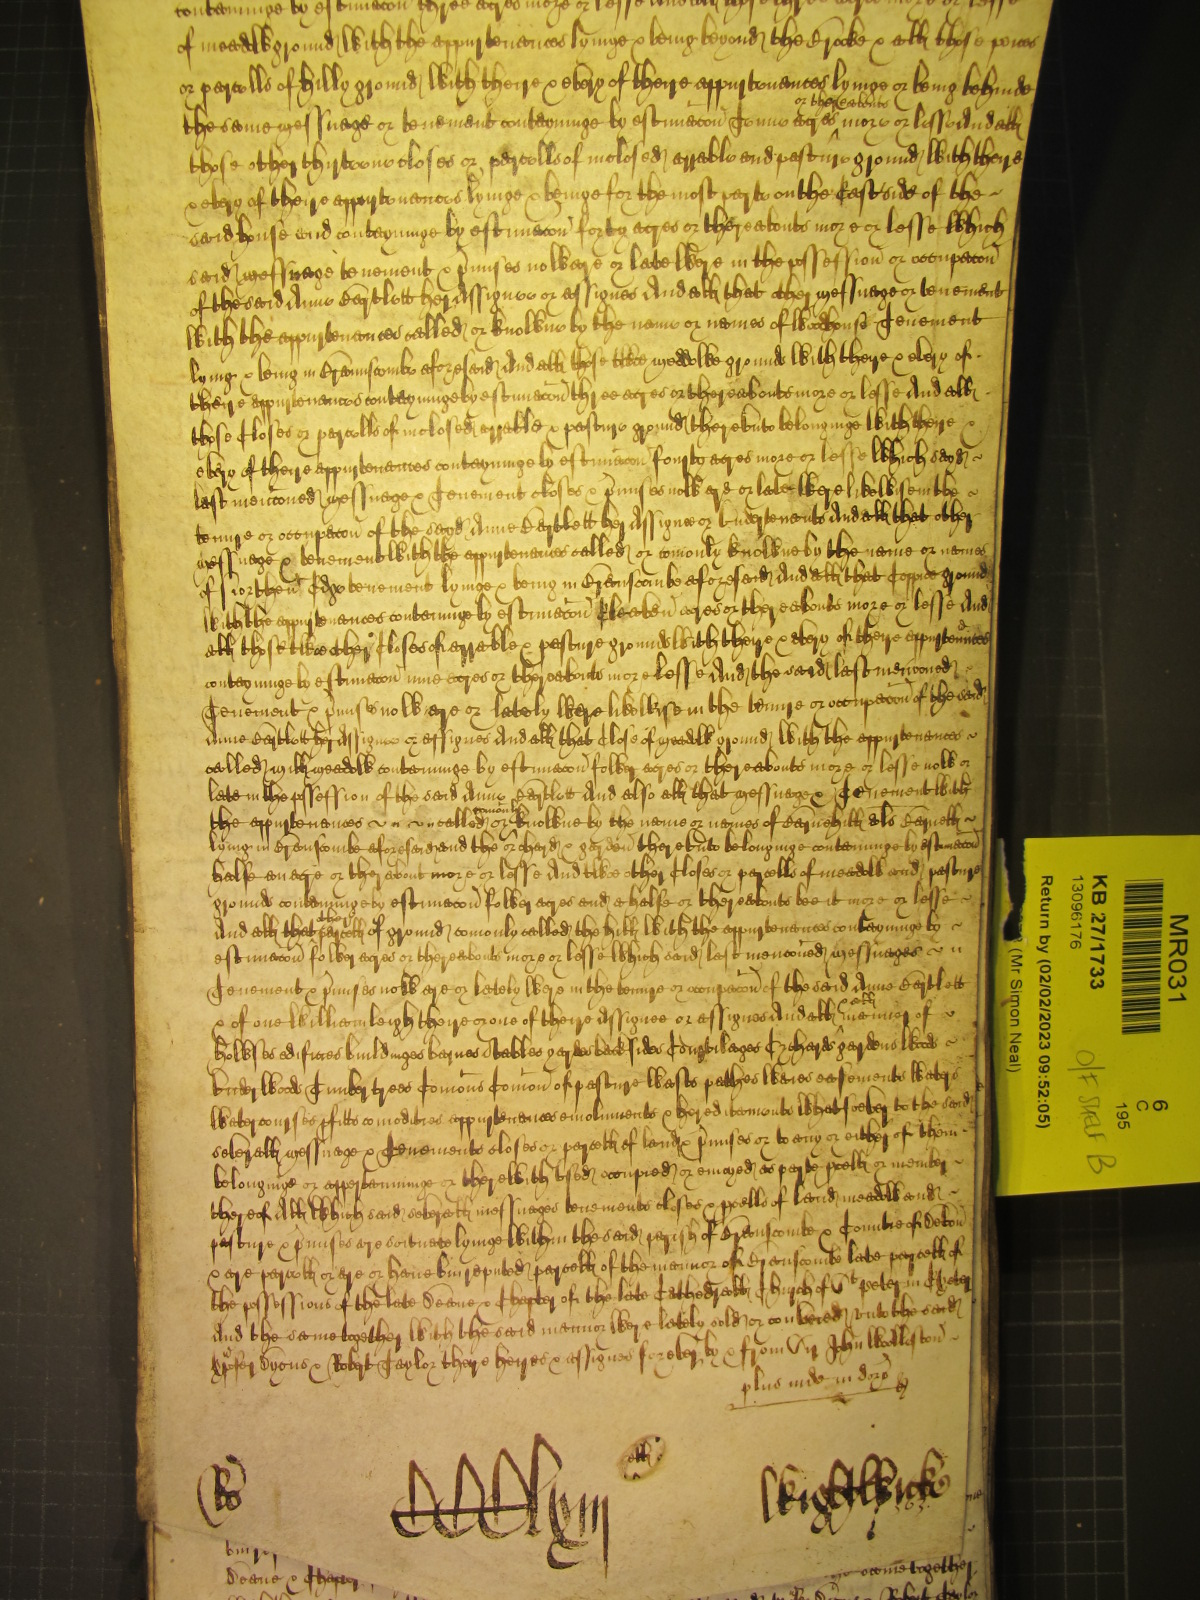 contayninge by estimacon three acres more or lesse
of meadow ground with the appurtenances lyinge & being beyond the Brooke & all those peices
or parcells of hilly ground with theire & every of theire appurtenances lyinge or being behinde
the same messuage or tenement contayninge by estimacon Tenne acres or thereabouts more or lesse And all
those other thirteene closes or parcells of inclosed arrable and pasture ground with theire
& every of theire appurtenances lyinge & beinge for the most parte on the East side of the
said house and contayninge by estimacon forty acres or thereabouts more or lesse Which
said messuage tenement & pmises now are or late were in the possession or occupacon
of the said Anne Bartlett her Assignee or assignes And all that other messuage or tenement
with the appurtenances called or knowne by the name or names of Woodhouse Tenement
lying & being in Branscombe aforesaid And all those meadowe grounds with theire & every of
theire appurtenances contayninge by estimacon three acres or thereabouts more or lesse And all
those Closes or parcells of inclosed arrable & pasture ground thereunto belonginge with theire &
every of theire appurtenances contayninge by estimacon forty acres more or lesse Which said
last mencioned messuage & Tenement closes & pmises now are or late were likewise in the
tenure or occupacon of the sayd Anne Bartlett her Assignee or undertenants And all that other
messuage & tenement with the appurtenances called or comonly knowne by the name or names
of tenement lyinge & being in Branscombe aforesaid And all that Coppice ground
with the appurtenances contayninge by estimacon Eleaven acres or thereabouts more or lesse And
all those other Closes of arrable & pasture grounds with theire & every of theire appurtenances
contayninge by estimacon nine acres or thereabouts more or lesse And the said last mencioned
Tenement & pmises now are or lately were likewise in the tenure or occupacon of the said
Anne Bartlett her Assignee or assignes And all that Close of meadow ground with the appurtenances
called meadow contayninge by estimacon fower acres or thereabouts more or lesse now or
late in the possession of the said Anne Bartlett And also all that messuage & Tenement with
the appurtenances called or comonly knowne by the name or names of Barnehill als Barnell
lying in Branscombe aforesaid and the orchard & garden thereunto belonginge contayninge by estimacon
halfe an acre or thereabout more or lesse And other Closes or parcells of meadow and pasture
grounds contayninge by estimacon fower acres and a halfe or thereabouts bee it more or lesse
And all that other parcell of ground comonly called the hill with the appurtenances contayninge by
estimacon fower acres or thereabouts more or lesse Which said last mencioned messuages
Tenement & pmises now are or lately were in the tenure or occupacon of the said Anne Bartlett
& of one William leigh theire or one of theire Assignee or assignes And all & all manner of
howses edifices buildinges barnes Stables yardes backsides Curtilages Orchards gardens woods
underwoods Timber trees Comons Comon of pasture wasts pathes waies easements waters
watercourses pfitts comodities appurtenances emoluments & hereditaments whatsoever to the said
severall messuage & Tenements closes or parcell of land & pmises or to any or either of them
belonginge or appertayninge or therewith used occupied or enioyed as parte pcell or member
thereof All which said severall messuages tenements closes & pcells of land meadow and
pasture & pmises are scituate lyinge within the said parish of Branscombe & Countie of Devon
& are parcell or are or have bin reputed parcell of the mannor of Branscombe late parcell of
the possessions of the late Deane & Chapter of the late Cathedrall Church of St peter in Exeter
And the same together with the said mannor were lately sold or conveied unto the said
Xpofer Dyons & Robert Taylor theire heires & assignes forever by & from Sir John Wollaston
plus inde in dorso
Ro
Wightwicke
Deane & Chapter
the same together
Robert Taylor
MR031
6
C
195
KB 27/1733
13096176
Return by (02/02/2023 09:52:05)
(Mr Simon Neal)
O/F Shelf B